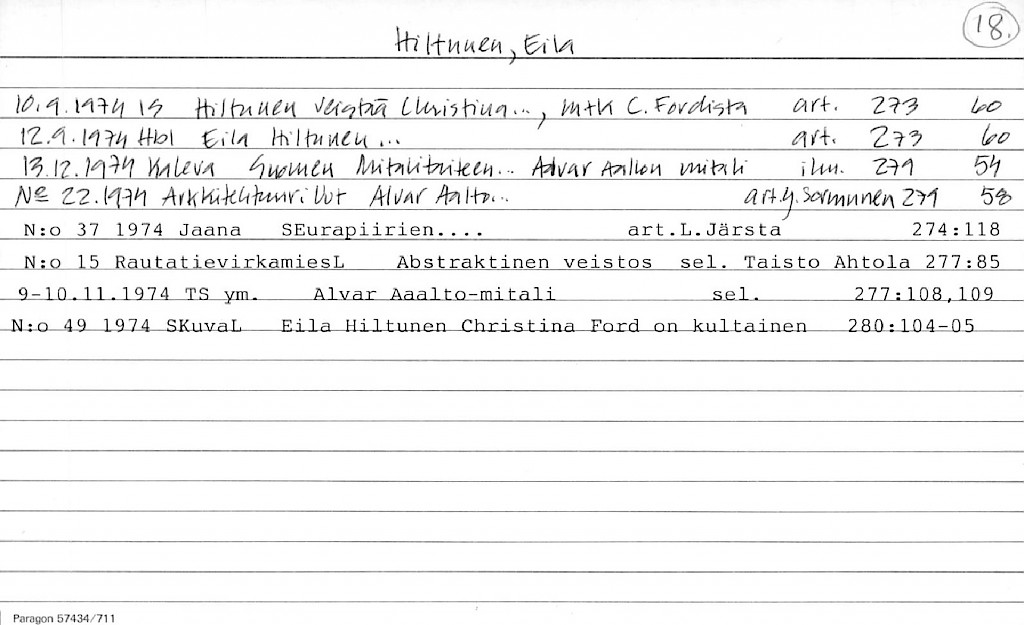 18.
Hiltunen, Eila
10.9.1974 IS Hiltunen veistää Christina..., mtk C. Fordista art. 273 60
12.9.1974 Hbl Eila Hiltunen... art. 273 60
13.12.1974 Kaleva Suomen Mitalitaiteen... Alvar Aallon mitali ilm. 279 54
No 22.1974 Arkkitehtuuri Uut Alvar Aalto... art. y. Sormunen 279 58
N:o 37 1974 Jaana SEurapiirien.... art.L.Järsta 274:118
N:o 15 RautatievirkamiesL Abstraktinen veistos sel. Taisto Ahtola 277:85
9-10.11.1974 TS ym. Alvar Aaalto-mitali sel. 277:108,109
N:o 49 1974 SKuvaL Eila Hiltunen Christina Ford on kultainen 280:104-05
Paragon 57434/711